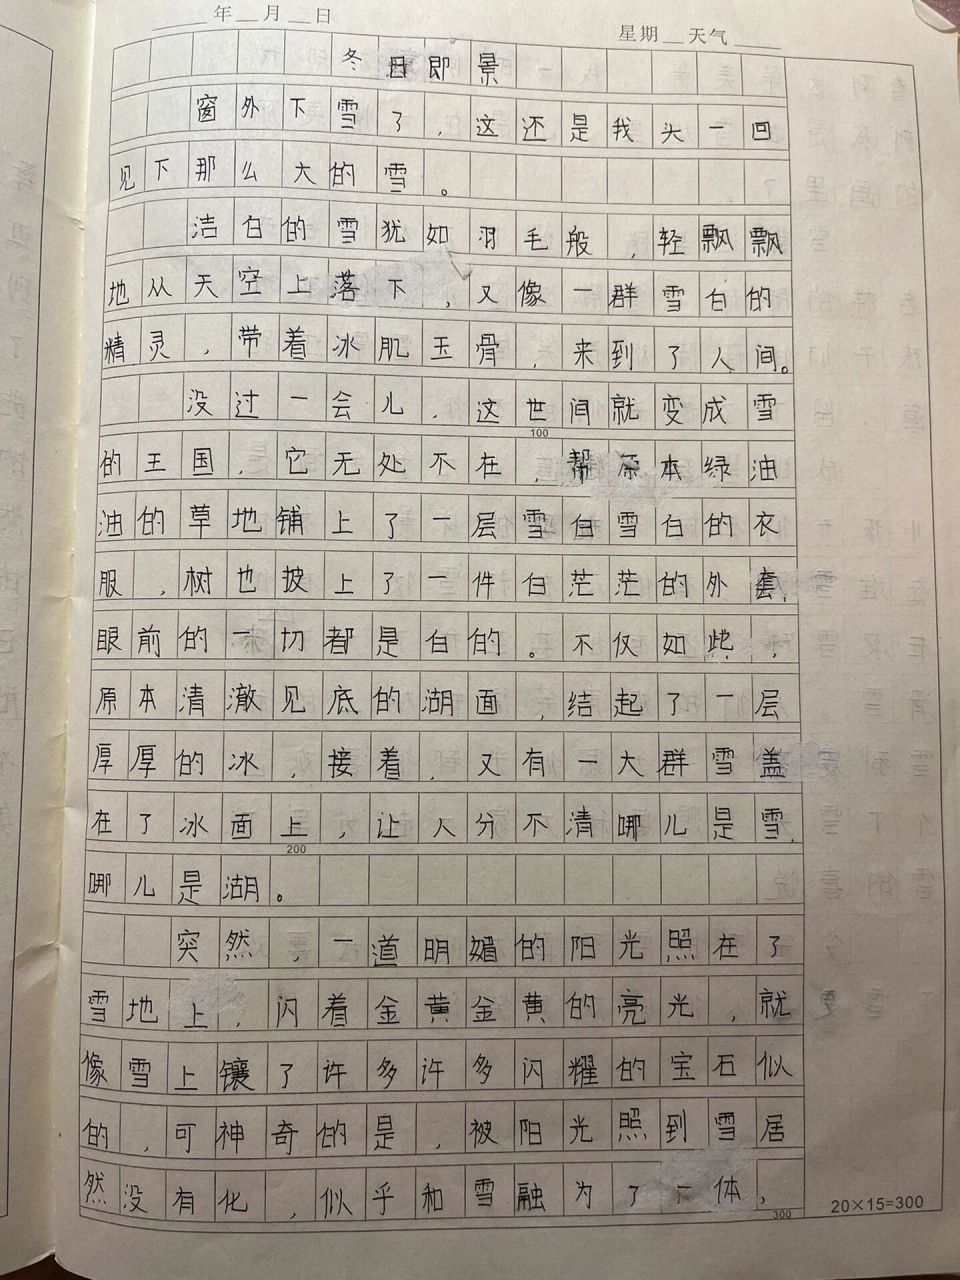 年 月 日
星期 天气
冬日即景
窗外下雪了，这还是我头一回
见下那么大的雪。
洁白的雪犹如羽毛般，轻飘飘
地从天空上落下，又像一群雪白的
精灵，带着冰肌玉骨，来到了人间。
没过一会儿，这世间就变成雪
100
的王国，它无处不在，帮原本绿油
油的草地铺上了一层雪白雪白的衣
服，树也披上了一件白茫茫的外套，
眼前的一切都是白的。不仅如此，
原本清澈见底的湖面，结起了一层
厚厚的冰，接着，又有一大群雪盖
在了冰面上，让人分不清哪儿是雪，
200
哪儿是湖。
突然，一道明媚的阳光照在了
雪地上，闪着金黄金黄的亮光，就
像雪上镶了许多许多闪耀的宝石似
的，可神奇的是，被阳光照到雪居
然没有化，似乎和雪融为了一体，
300
20×15=300